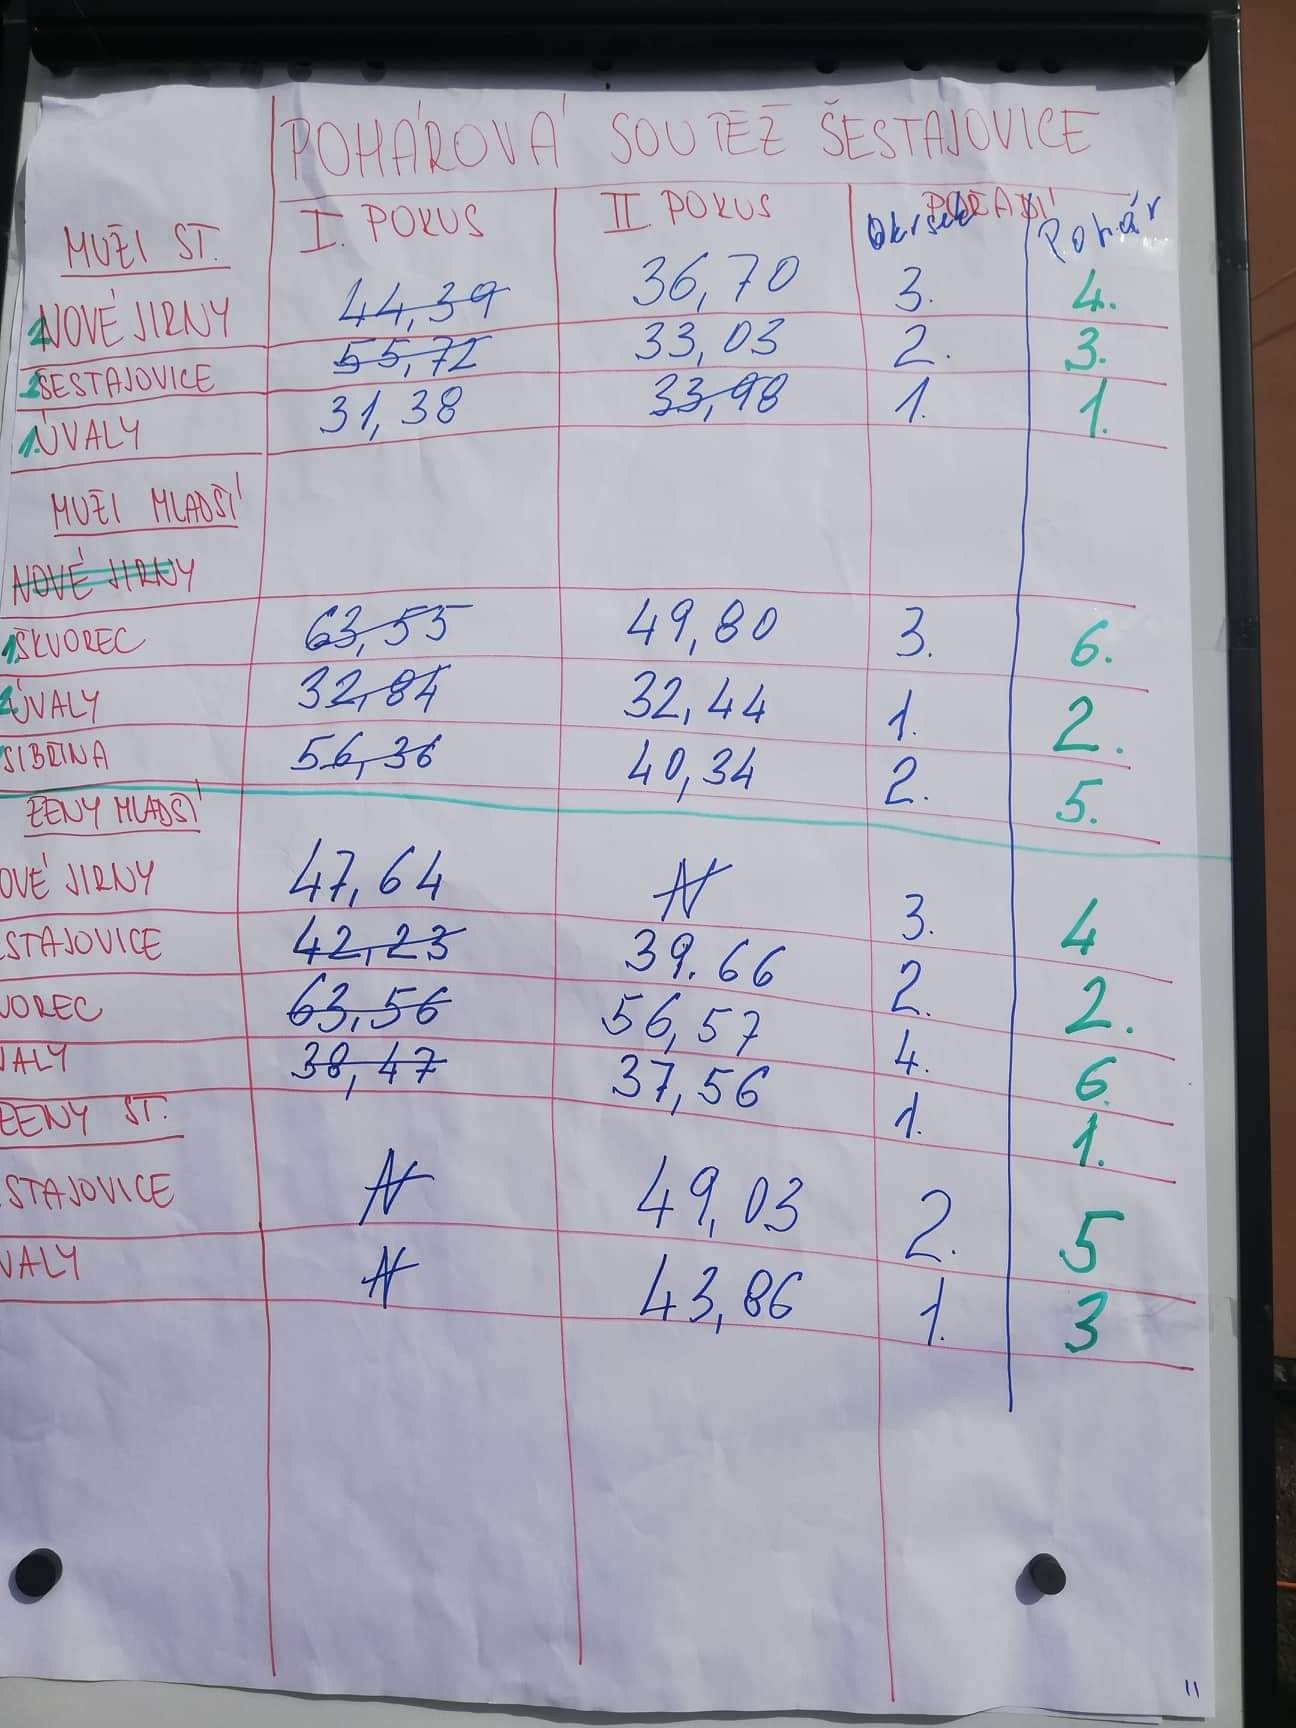 POHÁROVÁ SOUTĚŽ ŠESTAJOVICE
MUŽI ST. I. POKUS II. POKUS POŘADÍ
Okrsek Pohár
2 NOVÉ JIRNY 44,39 36,70 3. 4.
ŠESTAJOVICE 55,72 33,03 2. 3.
1. ÚVALY 31,38 33,98 1. 1.
MUŽI MLADŠÍ
NOVÉ JIRNY
1. ŠKVOREC 63,55 49,80 3. 6.
2 ÚVALY 32,84 32,44 1. 2.
SIBŘINA 56,36 40,34 2. 5.
ŽENY MLADŠÍ
OVÉ JIRNY 47,64 N 3. 4
ESTAJOVICE 42,23 39.66 2. 2.
VOREC 63,56 56,57 4. 6.
VALY 38,47 37,56 1. 1.
ŽENY ST.
ESTAJOVICE N 49,03 2. 5
VALY N 43,86 1. 3
11